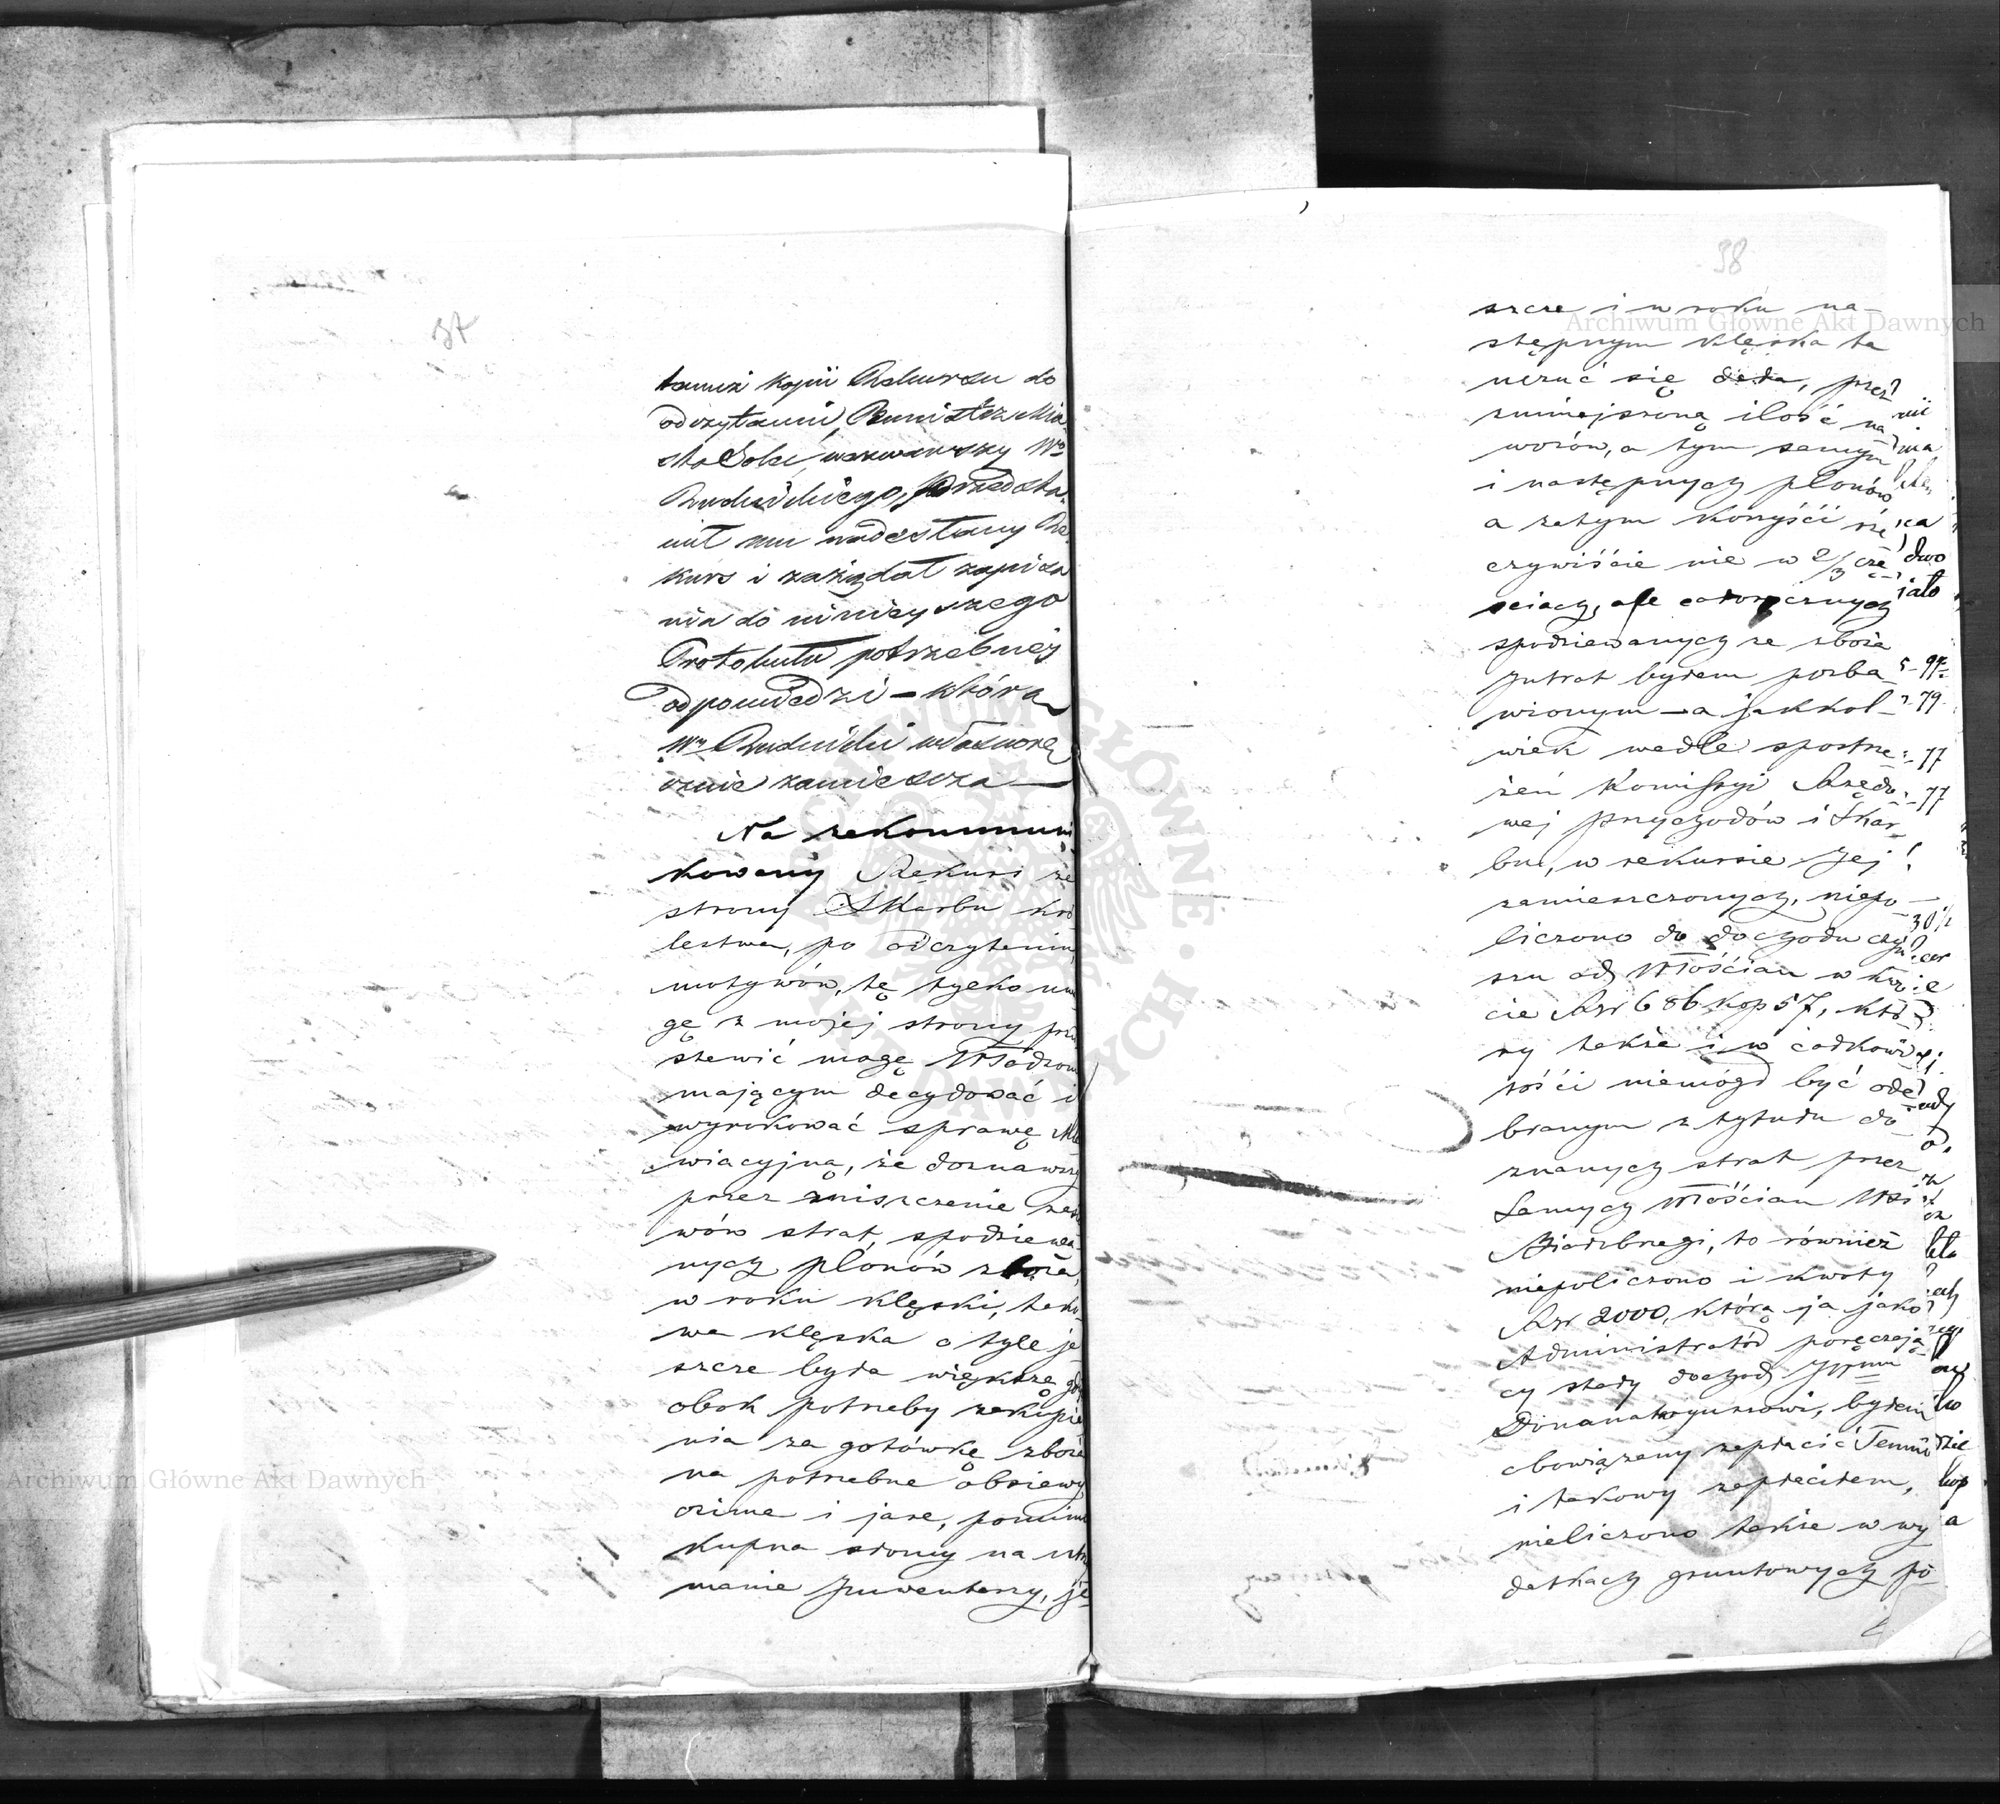 37
tamiż kopii Rekursu do
odczytania, Burmistrz Mia
sta Sokołowa wezwawszy Wo
Rudzińskiego, przedsta
wił mu nadesłany Re
kurs i zażądał zapisa
nia do niniejszego
Protokułu potrzebnej
odpowiedzi – którą
Wny Rudziński własnorę
cznie zamieszcza —
Na zakommuni
kowany Rekurs ze
strony Skarbu Kró
lestwa, po odczytaniu
motywów, tę tylko uwa
gę z mojej strony przed
stawić mogę Władzom
mającym decydować i
wyrokować sprawę
wiacyjną, że doznawszy
przez zniszczenie zasie
wów strat, spodziewa
nych plonów zboża,
w roku klęski, tako
wa klęska o tyle je
szcze była większą gdy
obok potrzeby zakupie
nia za gotówkę zboża
na potrzebne obsiewy
ozime i jare, pomimo
kupna słomy na utrzy
manie Inwentarzy, je
38
szcze i w roku na-
stępnym klęska ta
uczuć się dała, przez
zmniejszoną ilość na
wozów, a tym samym
i następnych plonów
a zatym korzyści rze
czywiście nie w 2/3 czę
ściach, ale całorocznych
spodziewanych ze zboża
Intrat byłem pozba
wionym – a jakkol
wiek wedle spostrze
żeń Komissyi Rządo
wej Przychodów i Skar
bu, w rekursie Jej
zamieszczonych, niepo
liczono do dochodu czyn
szu od Włościan w kwo
cie Rsr 686 kop 57, któ
ry także i w całkowi
tości niemógł być ode
branym z tytułu do
znanych strat przez
Samych Włościan Wsi
Brzegi, to również
niepoliczono i kwoty
Rsr 2000, którą ja jako
Administrator poręczają
cy stały dochód JW
Donanataryuszowi, byłem
obowiązany zapłacić Temuż
i takowy zapłaciłem,
nieliczono także w wy
datkach gruntowych po